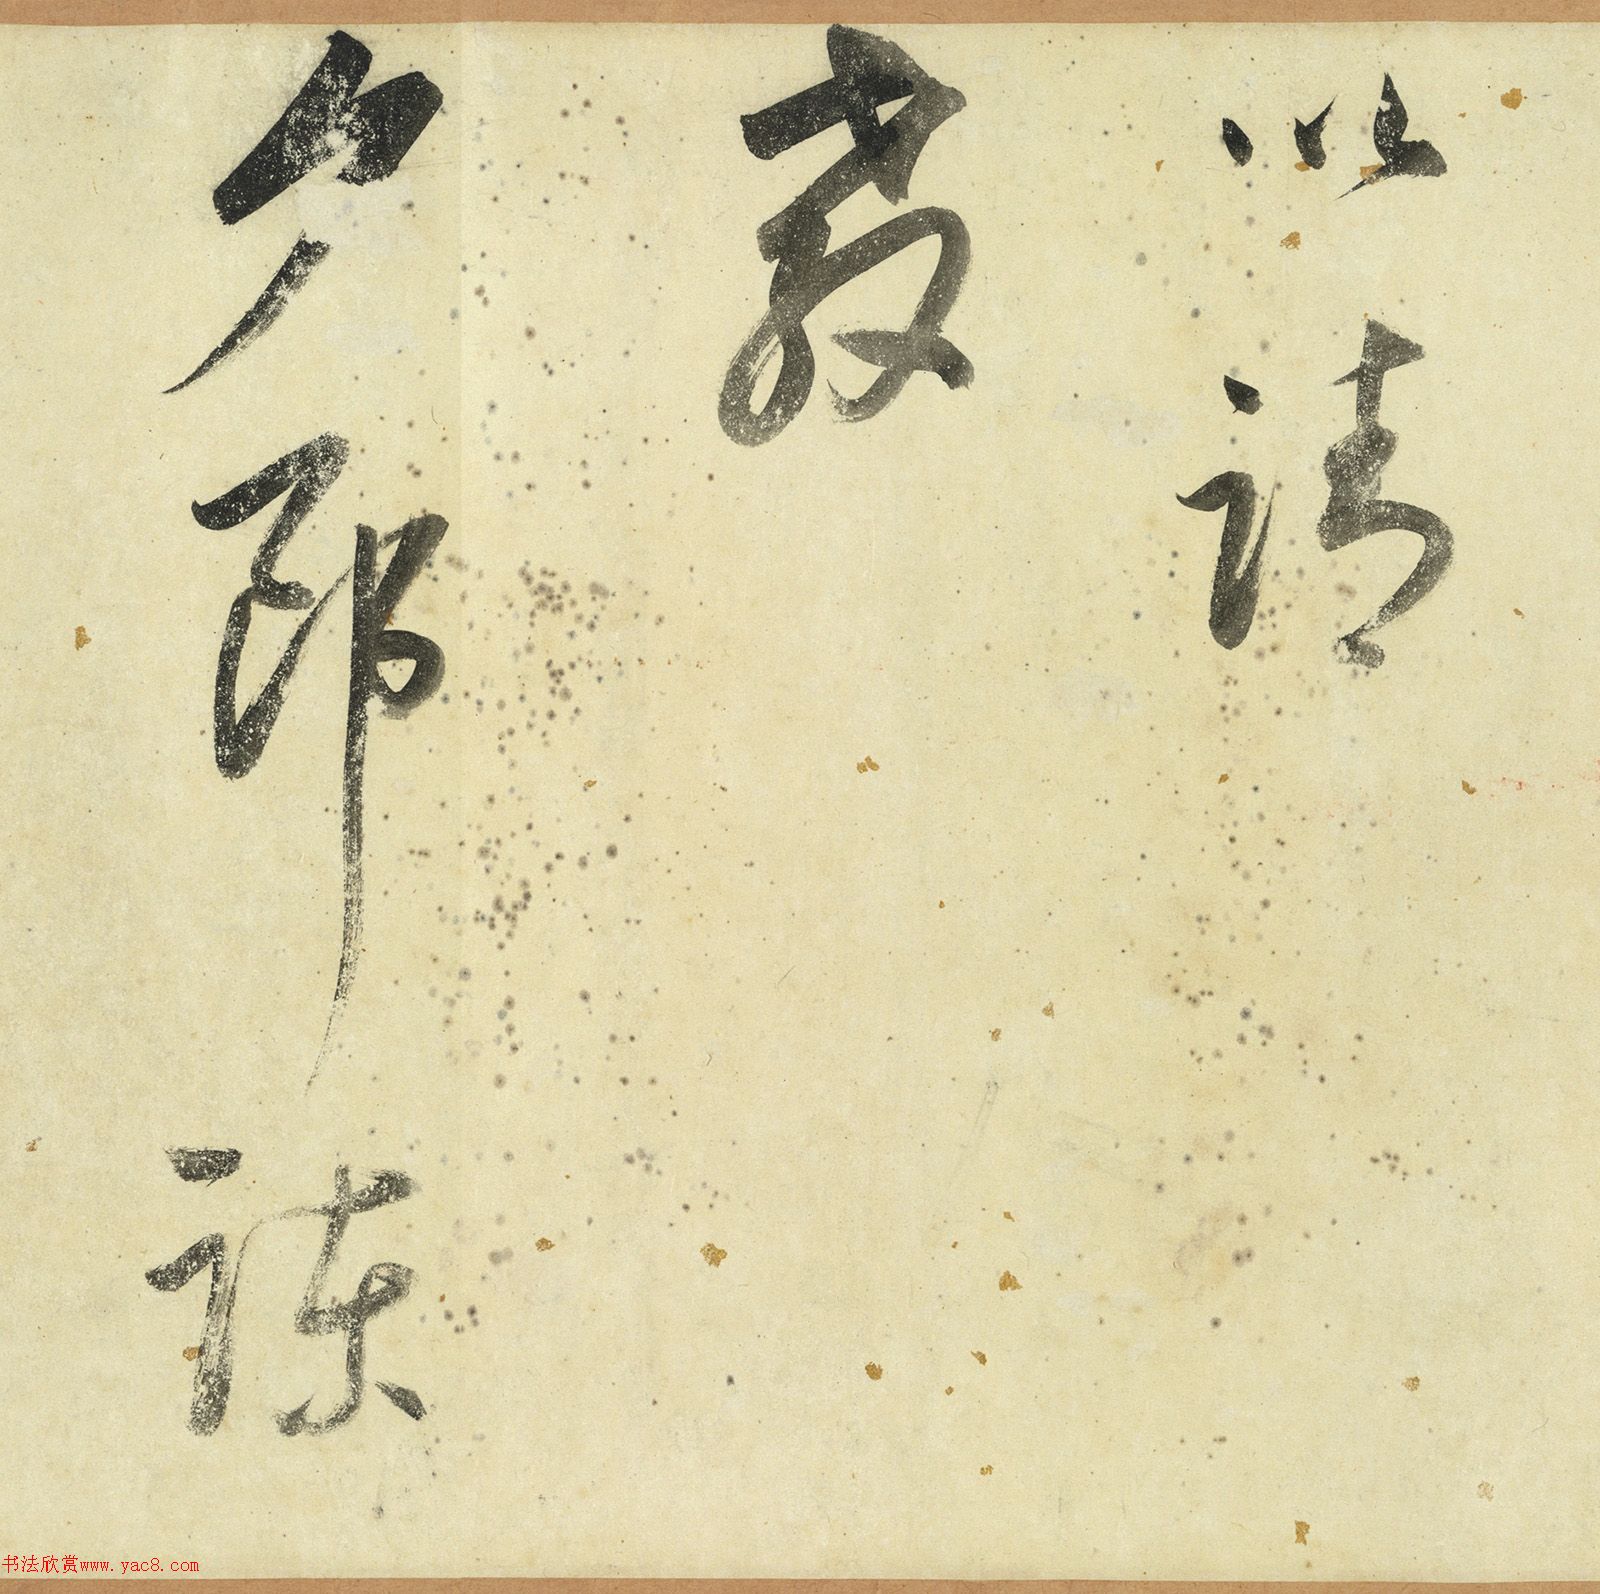 以請
教
夕郎諫
书法欣赏www.yac8.com